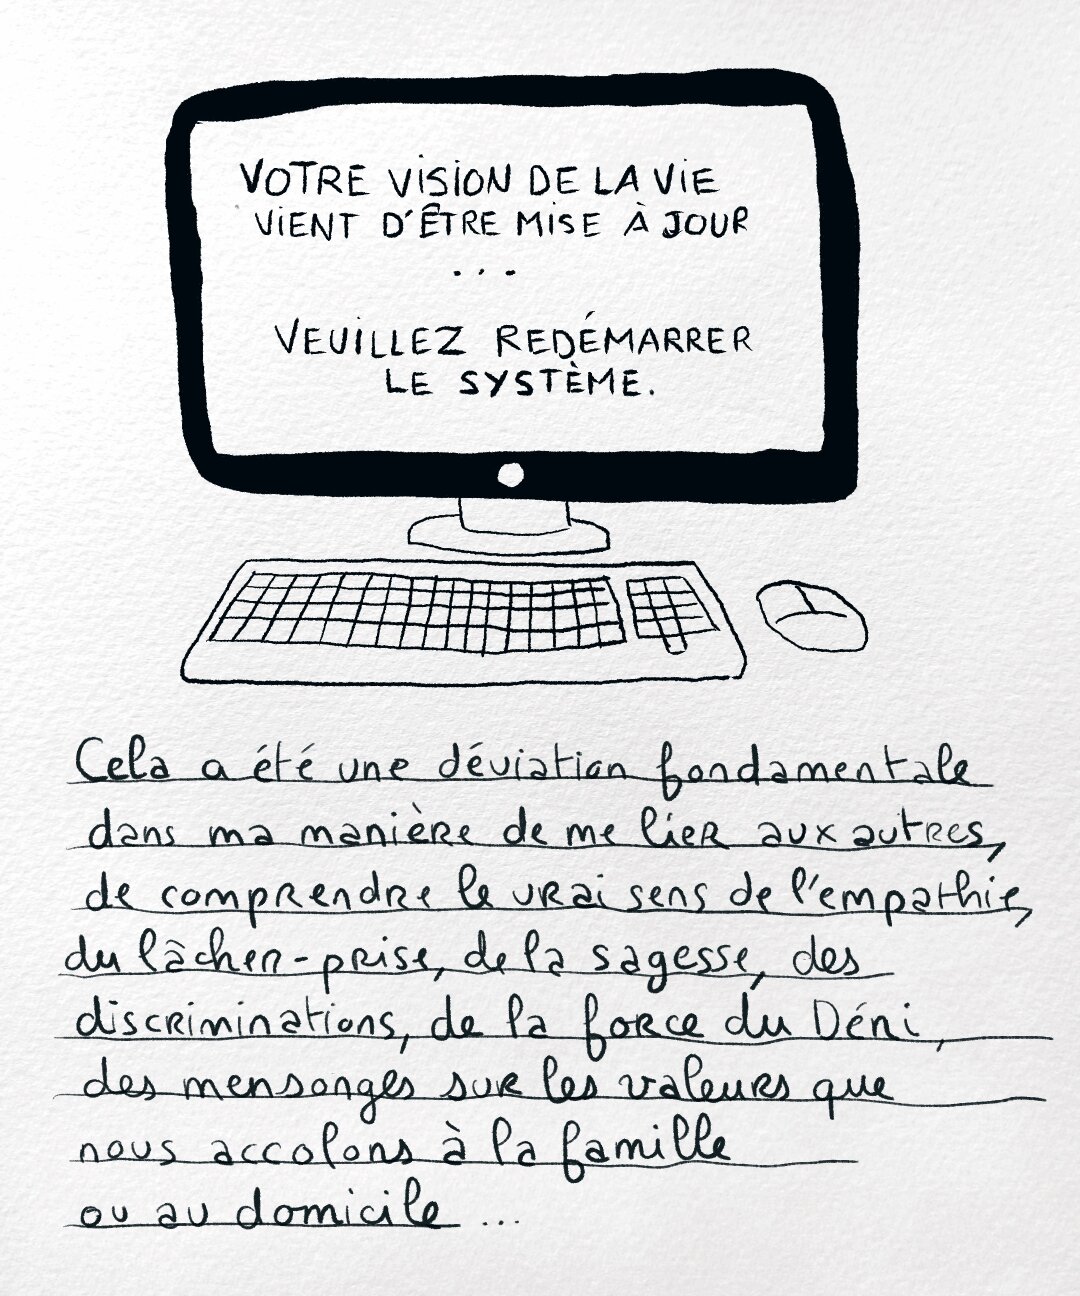 VOTRE VISION DE LA VIE
VIENT D'ÊTRE MISE À JOUR
...
VEUILLEZ REDÉMARRER
LE SYSTÈME.
Cela a été une déviation fondamentale
dans ma manière de me lier aux autres,
de comprendre le vrai sens de l'empathie,
du lâcher-prise, de la sagesse, des
discriminations, de la force du Déni,
des mensonges sur les valeurs que
nous accolons à la famille
ou au domicile ...